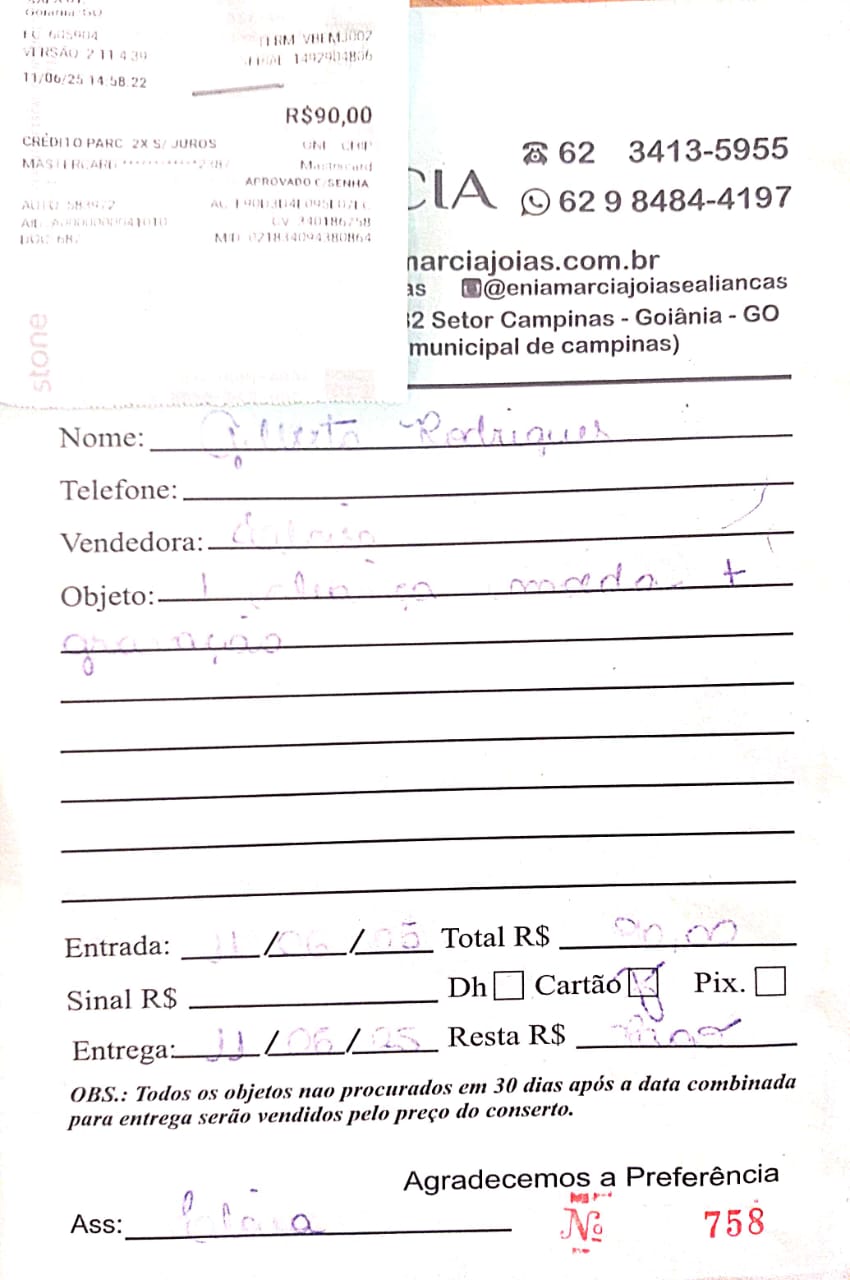 Goiânia GO
TERM VBEMJ002
VERSÃO 2.11.4.39
11/06/25 14.58.22
R$90,00
CRÉDITO PARC 2X S/ JUROS
MASTERCARD Mastercard
APROVADO C/SENHA
stone
CIA
62 3413-5955
62 9 8484-4197
narciajoias.com.br
as @eniamarciajoiasealiancas
32 Setor Campinas - Goiânia - GO
municipal de campinas)
Nome: Gilberto Rodrigues
Telefone:
Vendedora:
Objeto: 1 aliança moeda +
gravação
Entrada: 11/06/25 Total R$ 90,00
Sinal R$ Dh Cartão Pix.
Entrega: 11/06/25 Resta R$
OBS.: Todos os objetos nao procurados em 30 dias após a data combinada
para entrega serão vendidos pelo preço do conserto.
Agradecemos a Preferência
Ass:
Nº 758